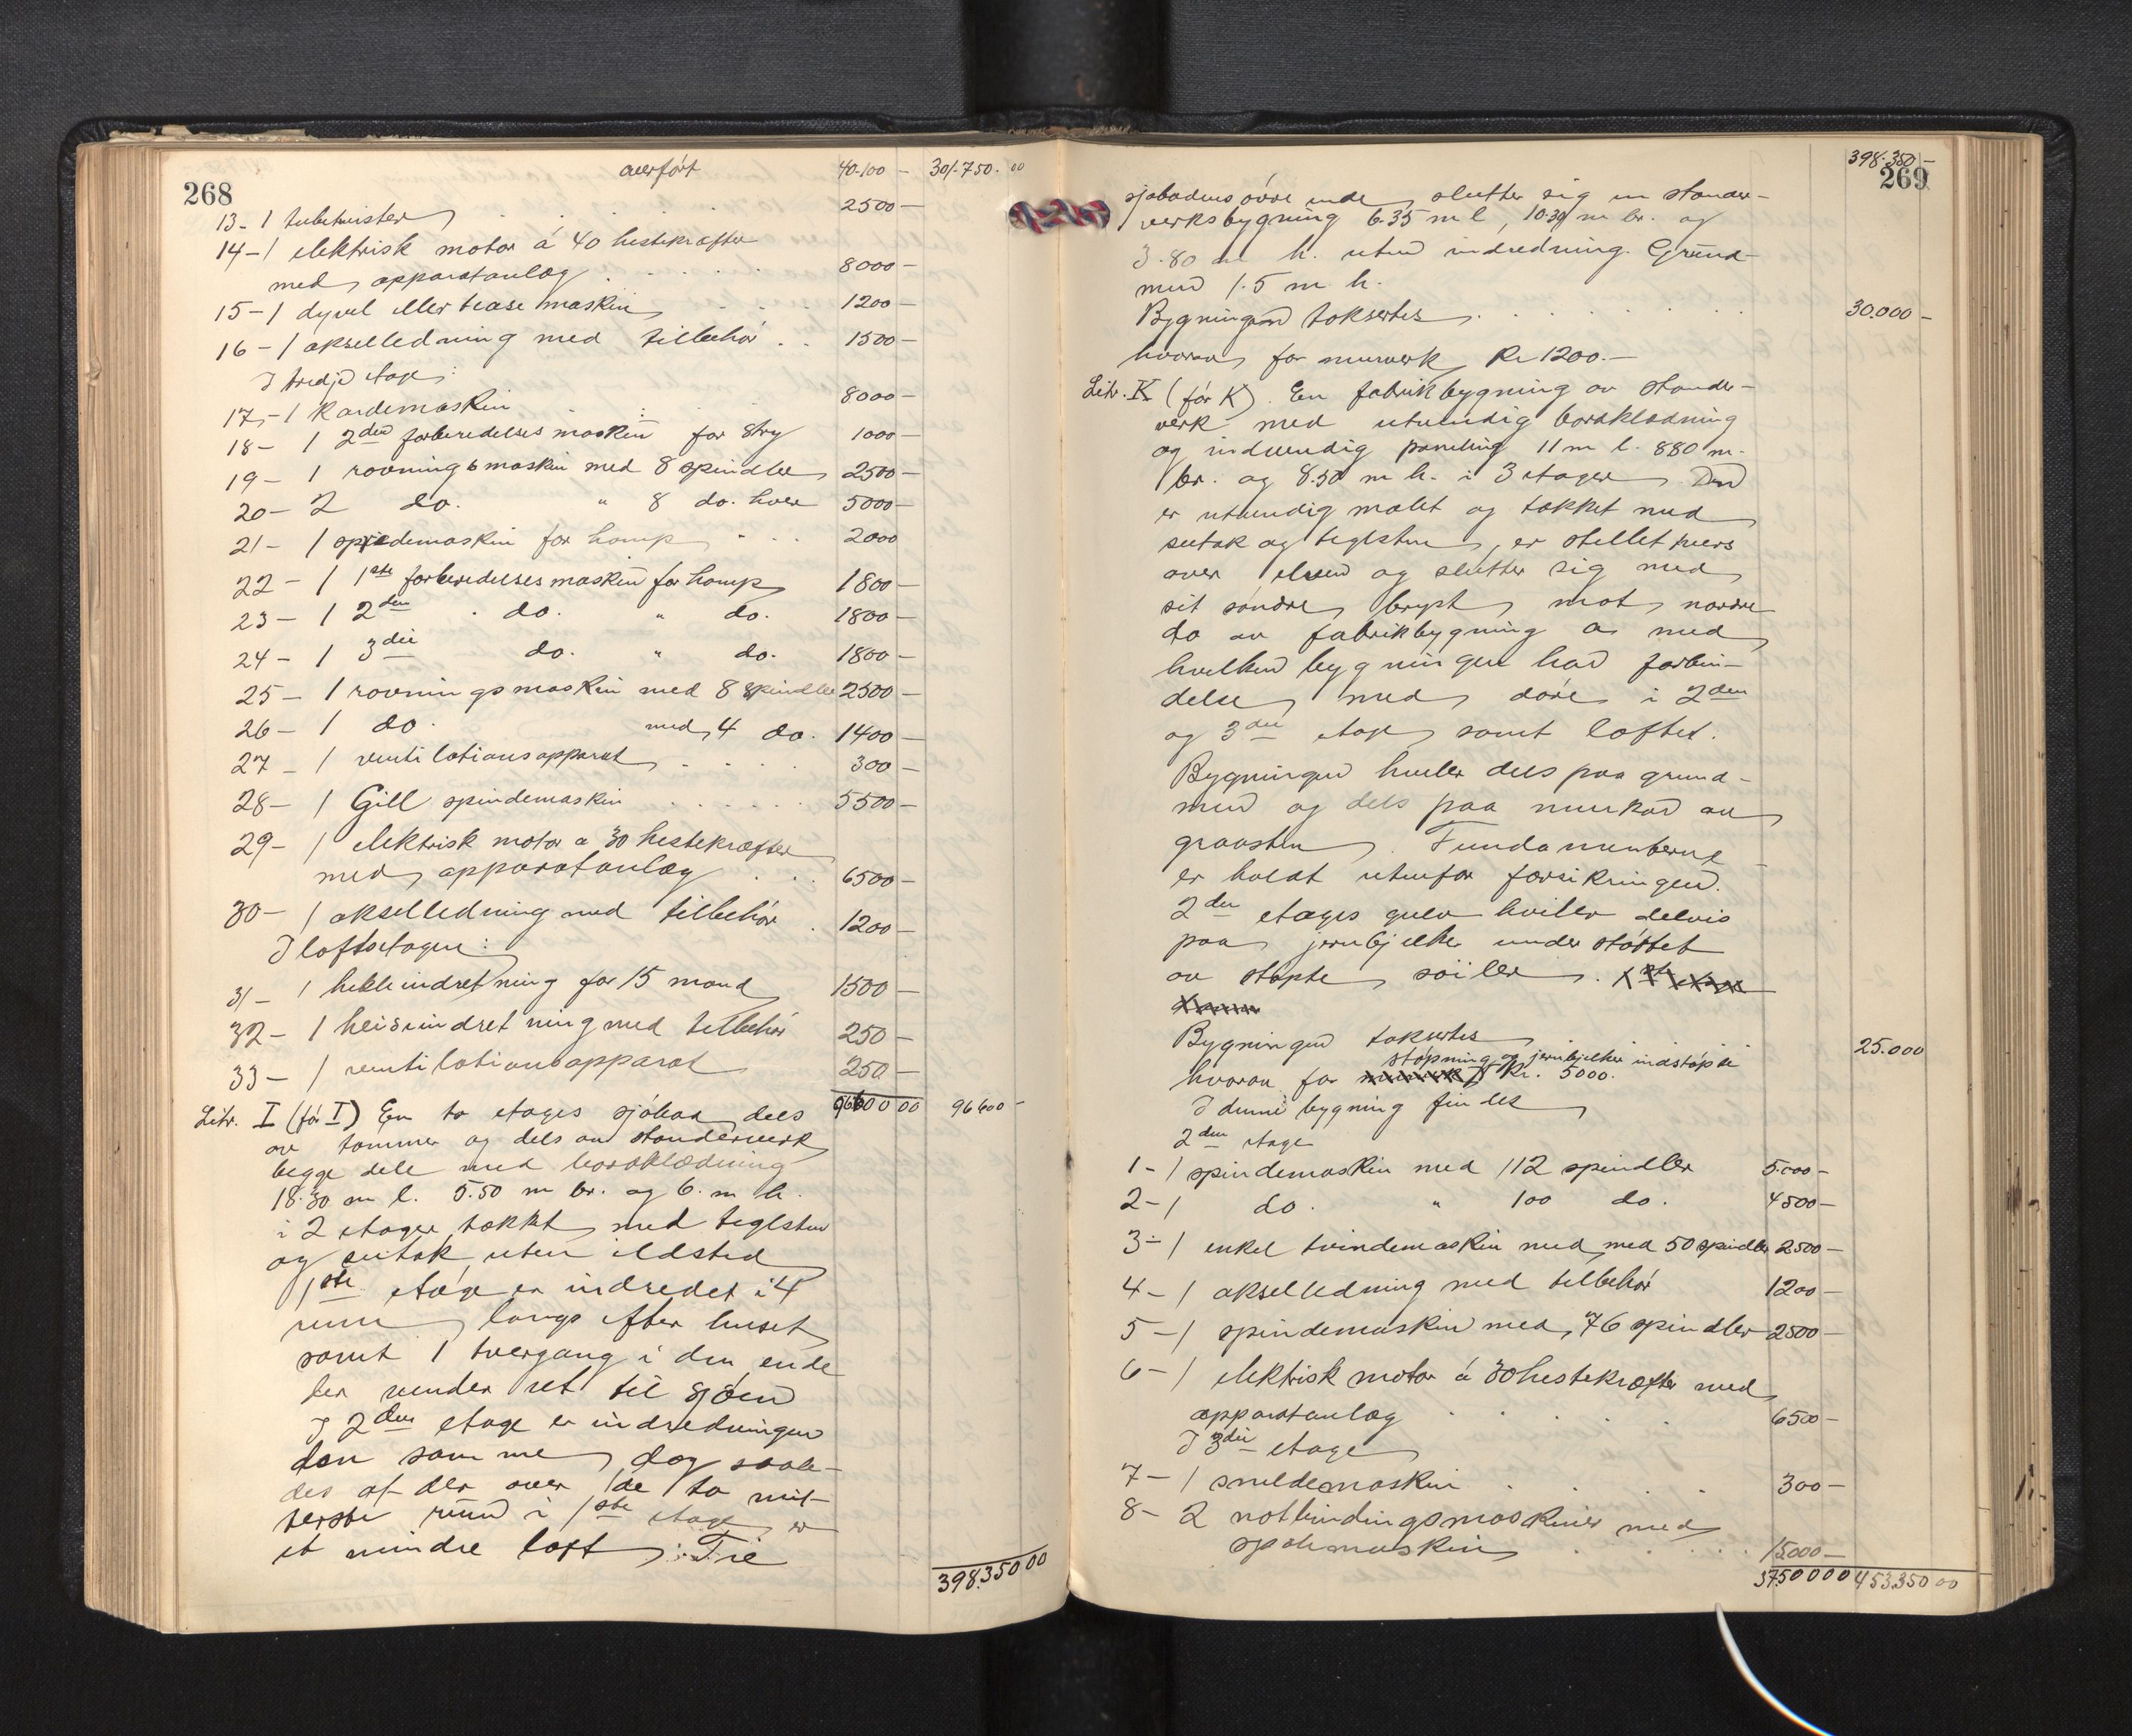 268
overført 40.100 – 301.750.00
13 – 1 tubetwister 2500 –
14 – 1 elektrisk motor á 40 hestekræfter
med apparatanlæg 8000 –
15 – 1 dyvel eller tease maskin 1200 –
16 – 1 akselledning med tilbehør 1500 –
I tredje etage:
17 – 1 kardemaskin 8000 –
18 – 1 2den forberedelses maskin for stry 1000 –
19 – 1 rovningsmaskin med 8 spindler 2500 –
20 – 2 do. " 8 do. hver 5000 –
21 – 1 spredemaskin for hamp 2000
22 – 1 1ste forberedelses maskin for hamp 1800 –
23 – 1 2den do. " do. 1800 –
24 – 1 3die do. " do. 1800 –
25 – 1 rovningsmaskin med 8 spindler 2500 –
26 – 1 do. med 4 do. 1400 –
27 – 1 ventilationsapparat 300 –
28 – 1 Gill spindemaskin 5500 –
29 – 1 elektrisk motor a 30 hestekræfter
med apparatanlæg 6500 –
30 – 1 akselledning med tilbehør 1200 –
I loftsetagen:
31 – 1 hekleindretning for 15 mand 1500 –
32 – 1 heisindretning med tilbehør 250 –
33 – 1 ventilationsapparat 250 –
96600 00 96600 –
Litr. I (før I) En to etages sjøbod dels
av tømmer og dels av stenderverk
begge dele med bordklædning
18.30 m l. 5.50 m br. og 6. m h.
i 2 etager tækket med teglsten
og sutak uten ildsted
1ste etage er indredet i 4
rum langs efter huset
samt 1 tvergang i den ende
der vender ret til sjøen
I 2den etage er indredningen
den samme dog saale-
des at der over de to mit-
terste rum i 1ste etage er
et mindre loft. Til
398.350 00
398.350 –
269
sjøbodens øvre ende slutter sig en stender-
verksbygning 6.35 m l, 10.30 m br. og
3.80 m h. uten indredning. Grund-
mur 1.5 m h.
Bygningen takseres 30.000 –
hvorav for murverk Kr 1200. –
Litr. K (før K). En fabrikbygning av stender-
verk med utvendig bordklædning
og indvendig paneling 11 m l. 880 m.
br. og 8.50 m h. i 3 etager. Den
er utvendig malet og tækket med
sutak og teglsten, er stillet tvers
over elven og slutter sig med
sit søndre bryst mot nordre
do av fabrikbygning a med
hvilken bygningen har forbin-
delse med døre i 2den
og 3die etage samt loftet.
Bygningen hviler dels paa grund-
mur og dels paa murkar av
graasten. Fundamenterne
er holdt utenfor forsikringen.
2den etages gulv hviler delvis
paa jernbjelker understøttet
av støpte søiler.
Bygningen takseres 25.000
støpning og jernbjelker indstøpte
hvorav for Kr. 5000.
I denne bygning findes
2den etage
1 – 1 spindemaskin med 112 spindler 5.000 –
2 – 1 do. " 100 do. 4500 –
3 – 1 enkel tvindemaskin med med 50 spindler 2500 –
4 – 1 akselledning med tilbehør 1200 –
5 – 1 spindemaskin med 76 spindler 2500 –
6 – 1 elektrisk motor á 30 hestekræfter med
apparatanlæg 6500 –
I 3die etage
7 – 1 sneldemaskin 300 –
8 – 2 notbindingsmaskiner med
spolemaskin 15000 –
37500 00 453.350 00